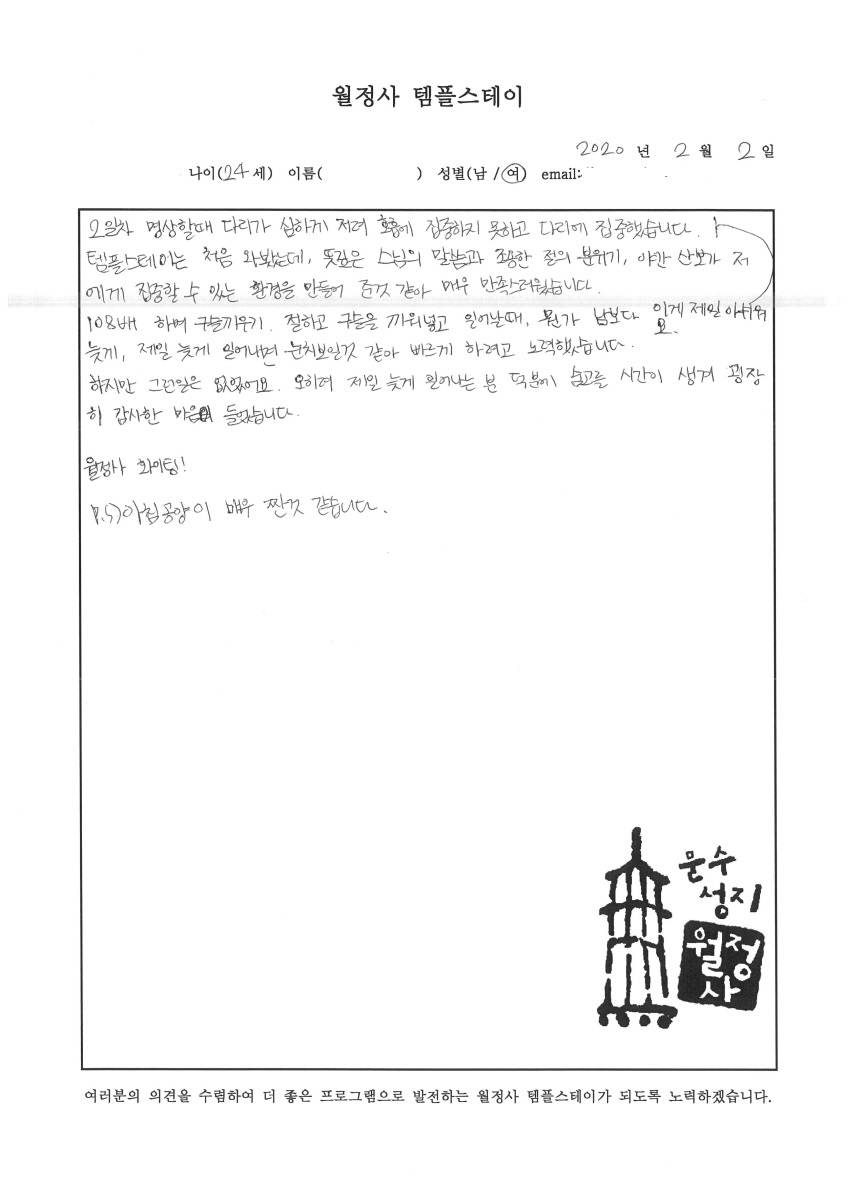 월정사 템플스테이
2020 년 2 월 2 일
나이(24 세) 이름( ) 성별(남 /여) email:
2일차 명상할때 다리가 심하게 저려 호흡에 집중하지 못하고 다리에 집중했습니다.
템플스테이는 처음 와봤는데, 뜻깊은 스님의 말씀과 조용한 절의 분위기, 야간 산보가 저
에게 집중할 수 있는 환경을 만들어 준것 같아 매우 만족스러웠습니다.
이게 제일 아쉬워
요.
108배 하며 구슬끼우기. 절하고 구슬을 끼워넣고 일어날때, 뭔가 남보다
늦게, 제일 늦게 일어나면 눈치보일것 같아 빠르게 하려고 노력했습니다.
하지만 그런일은 없었어요. 오히려 제일 늦게 일어나는 분 덕분에 숨고를 시간이 생겨 굉장
히 감사한 마음이 들었습니다.
월정사 화이팅!
P.S)아침공양이 매우 짠것 같습니다.
문수
성지
월정
사
여러분의 의견을 수렴하여 더 좋은 프로그램으로 발전하는 월정사 템플스테이가 되도록 노력하겠습니다.